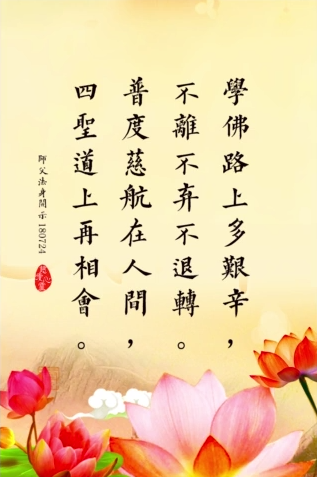 學佛路上多艱辛，
不離不弃不退轉。
普度慈航在人間，
四聖道上再相會。
師父法身開示 180724